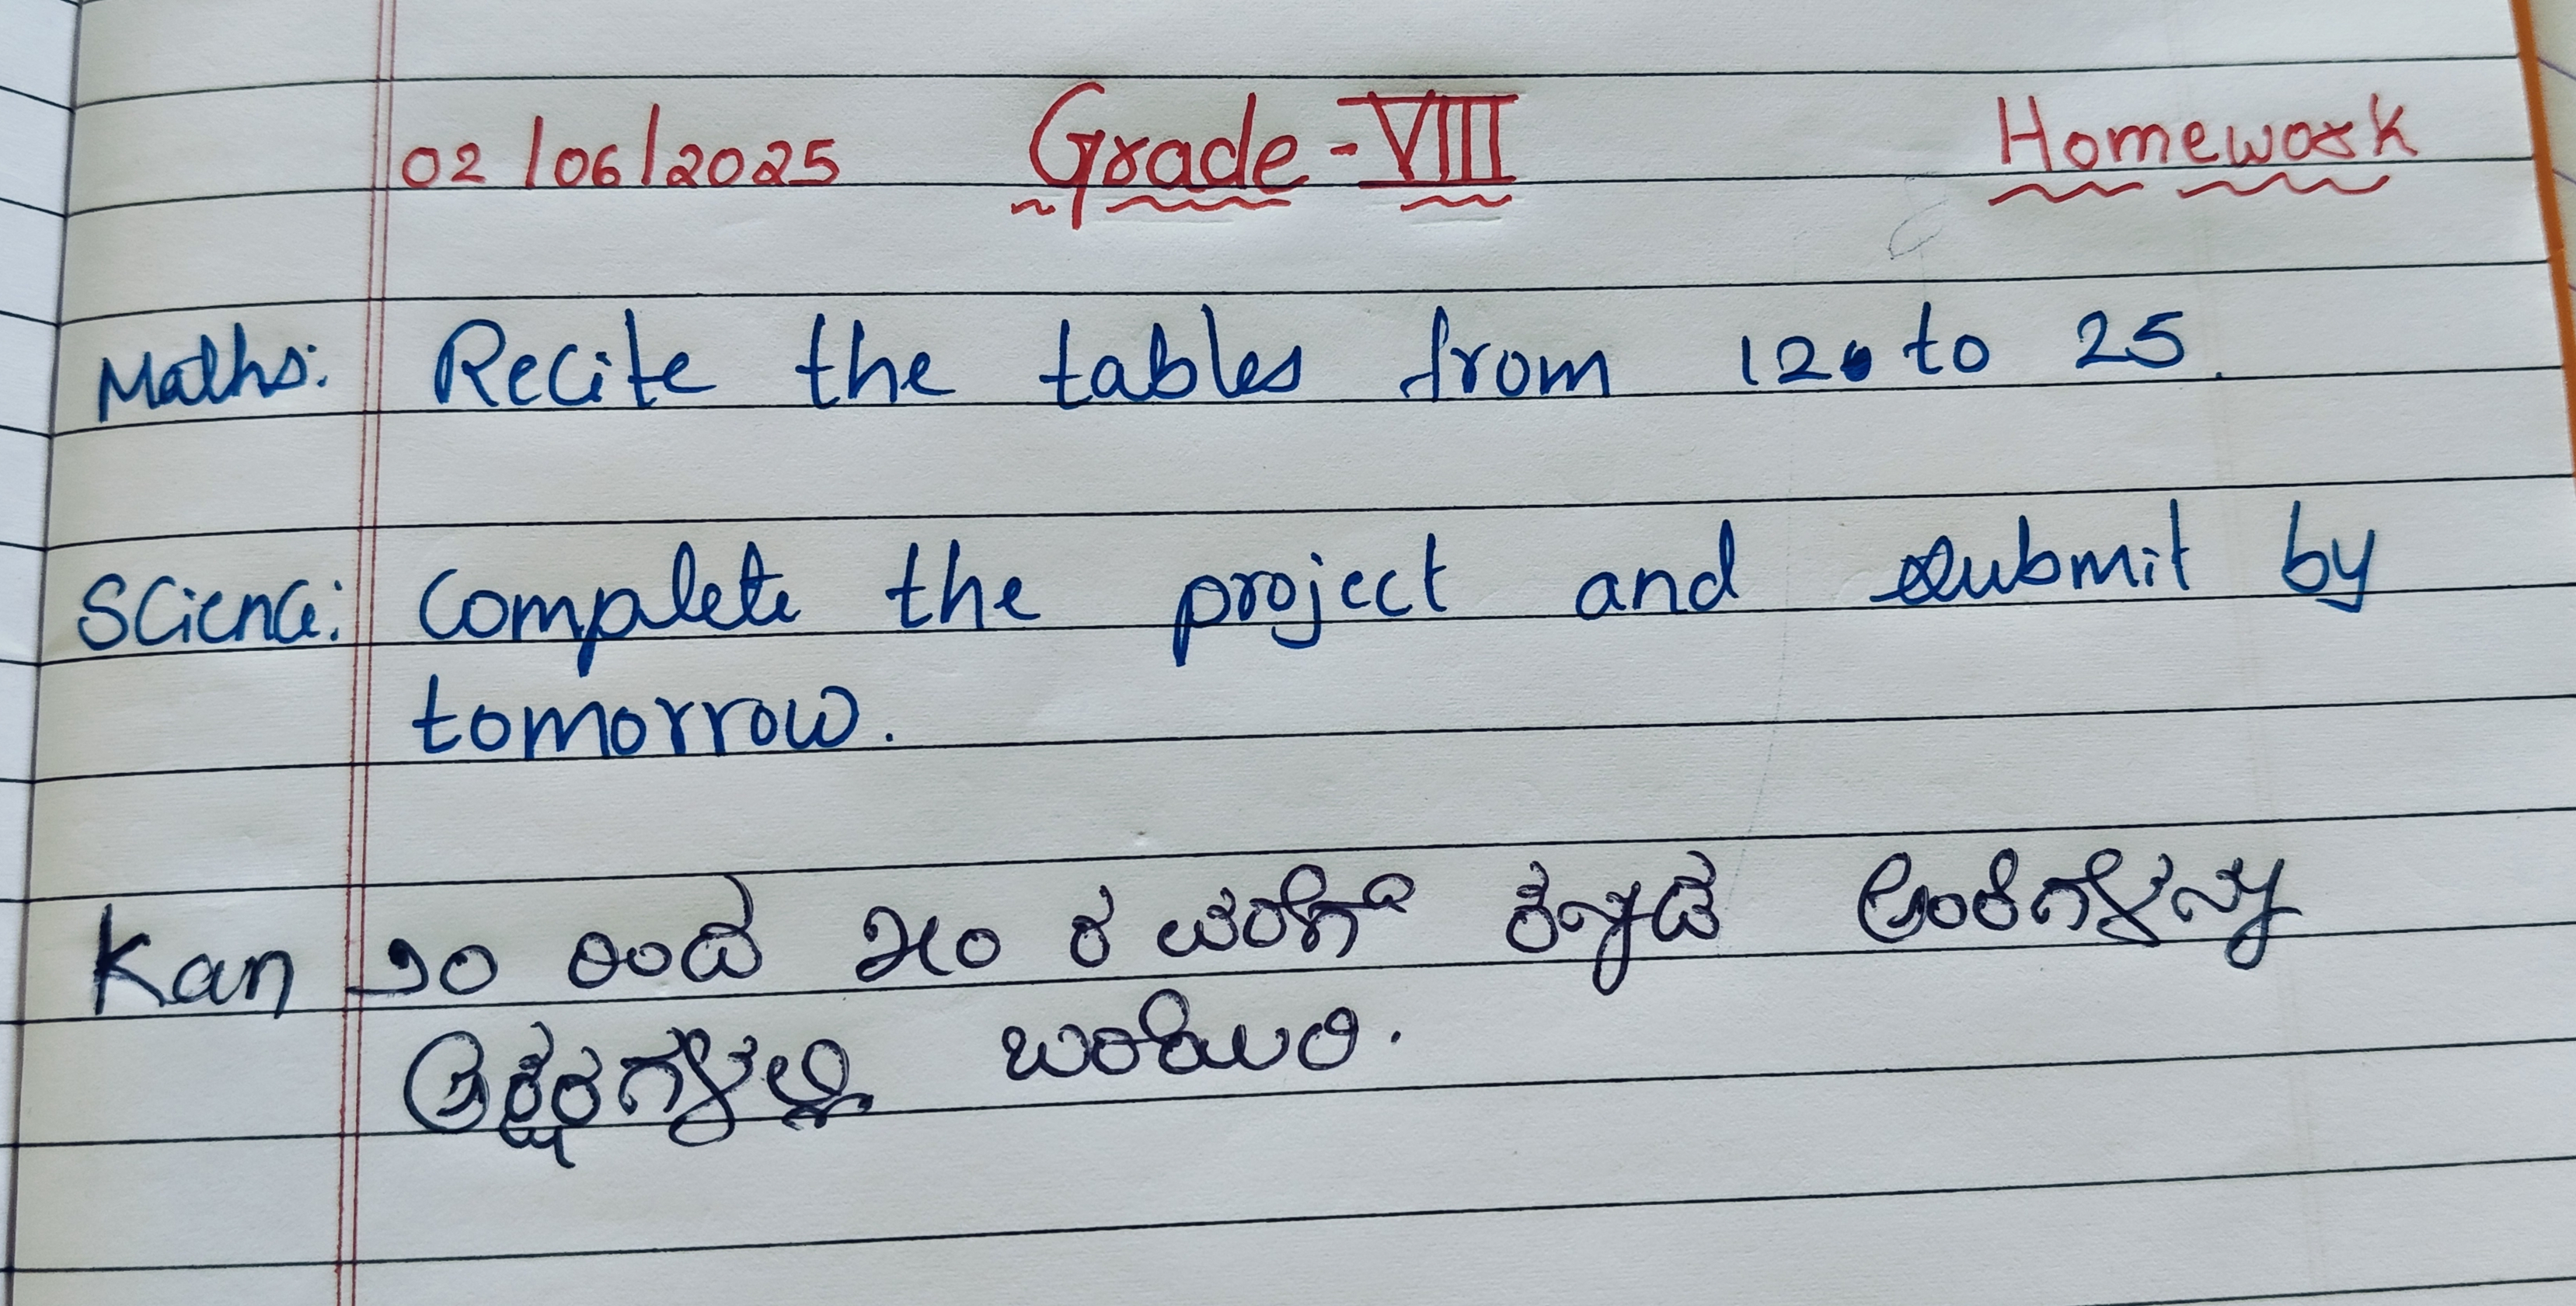 02/06/2025 Grade-VIII Homework
Maths: Recite the tables from 12 to 25.
Science: Complete the project and submit by
tomorrow.
Kan ೨೦ ರಿಂದ ೫೦ ರ ವರೆಗೆ ಕನ್ನಡ ಅಂಕಿಗಳನ್ನು
ಅಕ್ಷರಗಳಲ್ಲಿ ಬರೆಯಿರಿ.